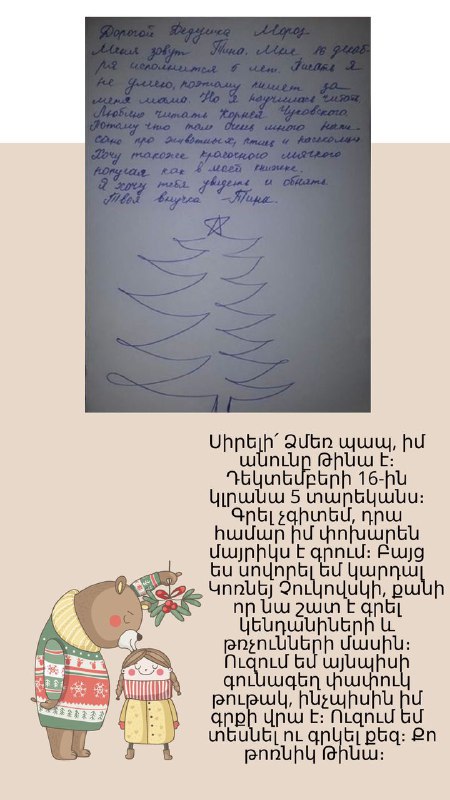 Дорогой Дедушка Мороз
Меня зовут Тина. Мне 16 декаб-
ря исполнится 5 лет. Писать я
не умею, поэтому пишет за
меня мама. Но я научилась читать
Люблю читать Корней Чуковского
потому что там очень много напи-
сано про животных, птиц и насекомых
Хочу такоже красочного мягкого
попугая как в моей книжке.
Я хочу тебя увидеть и обнять
Твоя внучка -Тина.
Սիրելի՛ Ձմեռ պապ, իմ
անունը Թինա է։
Դեկտեմբերի 16-ին
կլրանա 5 տարեկանս։
Գրել չգիտեմ, դրա
համար իմ փոխարեն
մայրիկս է գրում։ Բայց
ես սովորել եմ կարդալ
Կոռնեյ Չուկովսկի, քանի
որ նա շատ է գրել
կենդանիների և
թռչունների մասին։
Ուզում եմ այնպիսի
գունագեղ փափուկ
թութակ, ինչպիսին իմ
գրքի վրա է։ Ուզում եմ
տեսնել ու գրկել քեզ։ Քո
թոռնիկ Թինա։